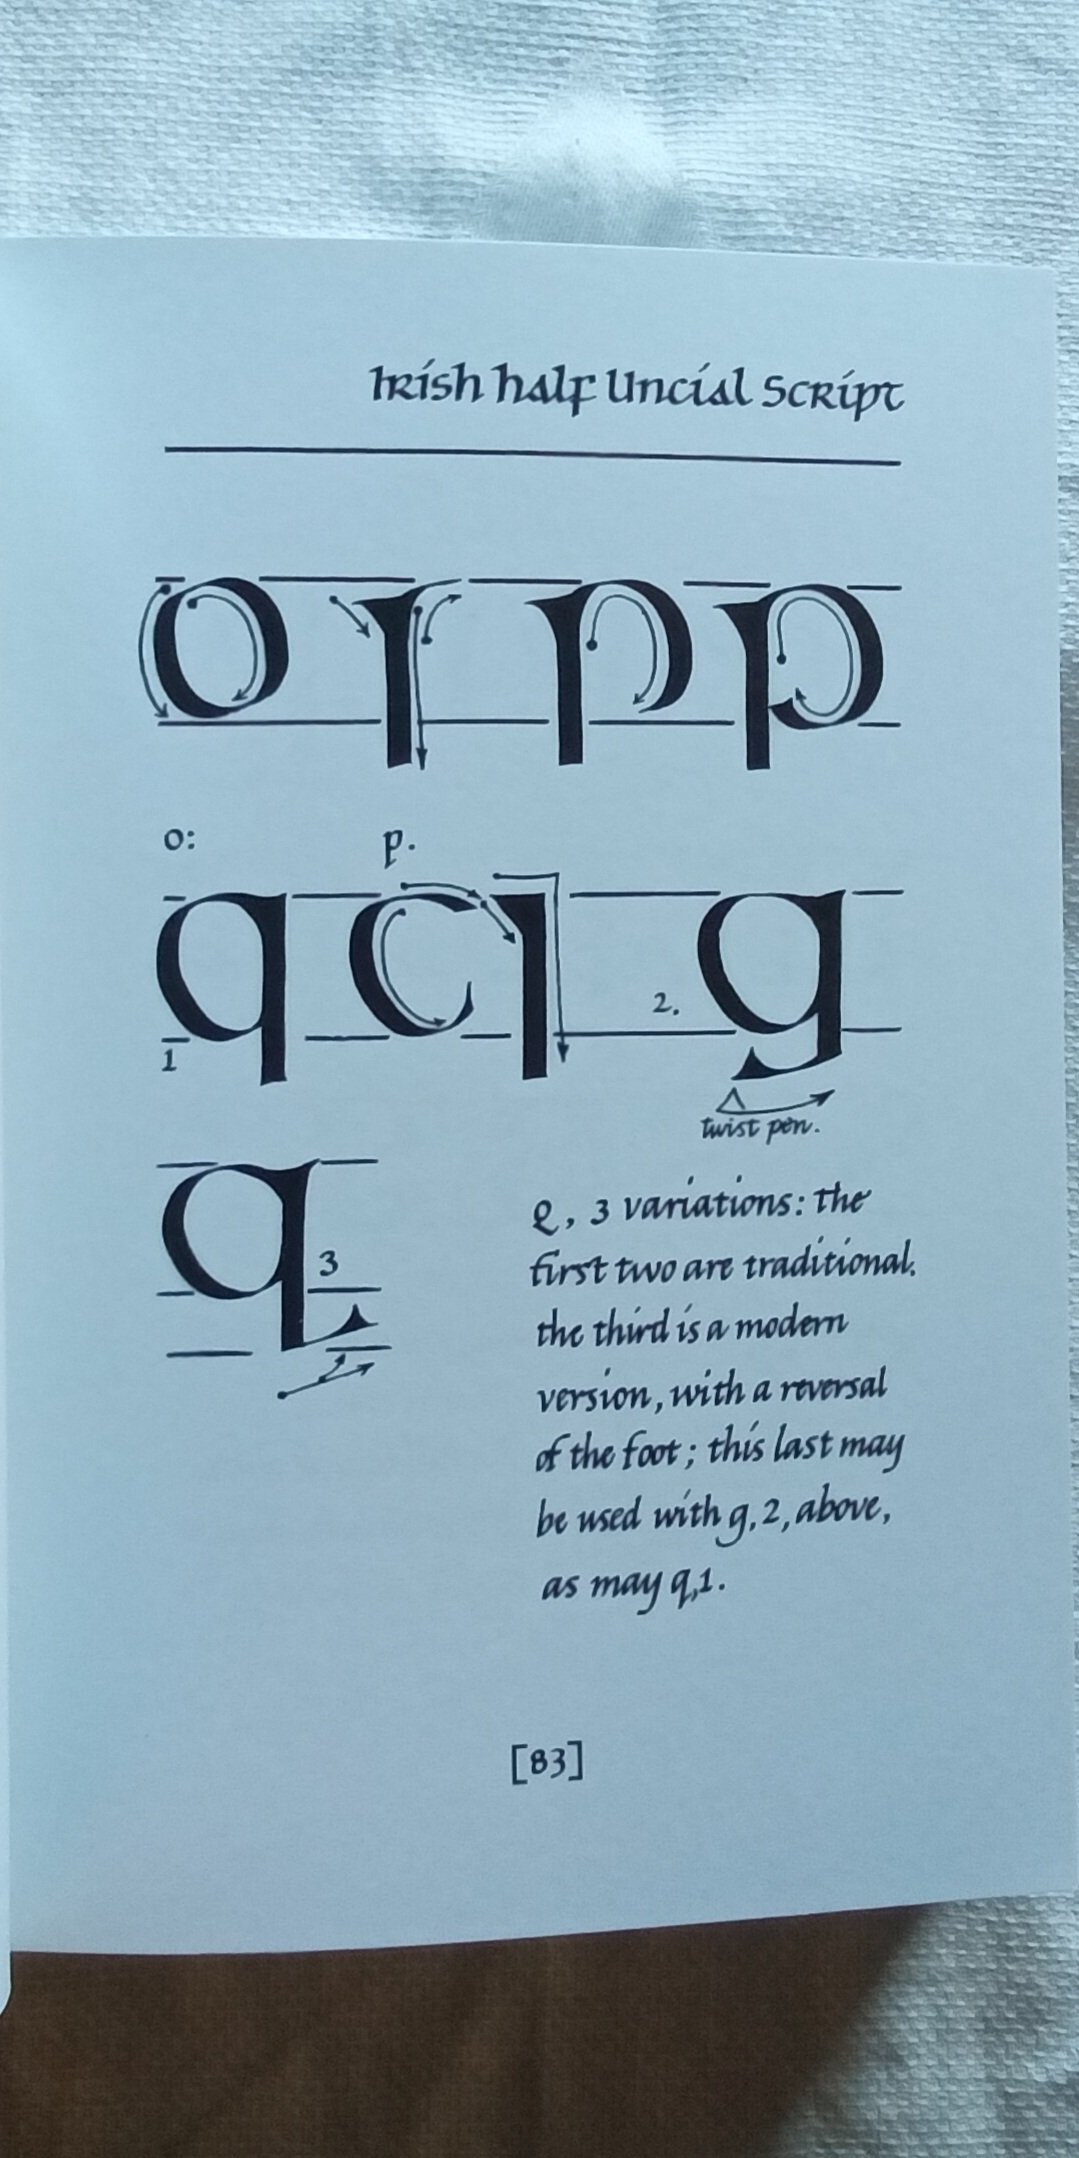 Irish Half Uncial Script
o p p p
o: p.
q c q g
1 2.
twist pen.
q
3
Q, 3 variations: the
first two are traditional.
the third is a modern
version, with a reversal
of the foot; this last may
be used with g, 2, above,
as may q,1.
[83]